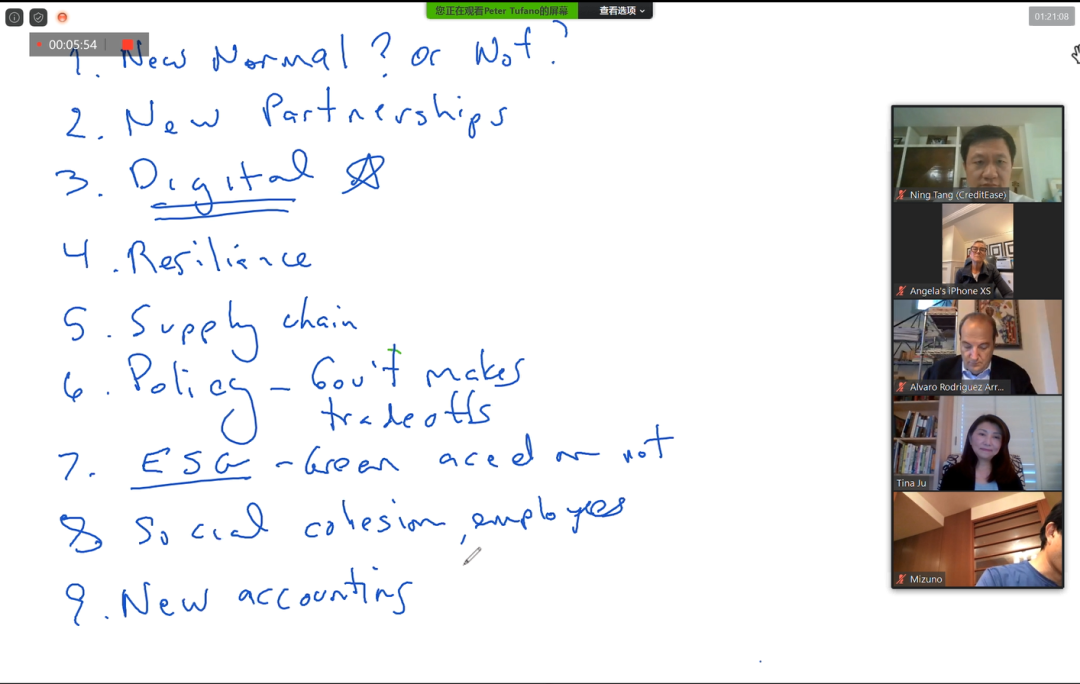 您正在观看Peter Tufano的屏幕 查看选项
01:21:08
00:05:54
1. New Normal? or Not?
2. New Partnerships
3. Digital
4. Resilience
5. Supply chain
6. Policy - Gov't makes
tradeoffs
7. ESG - Green or not
8 Social cohesion, employees
9. New accounting
Ning Tang (CreditEase)
Angela's iPhone XS
Alvaro Rodriguez Arr...
Tina Ju
Mizuno